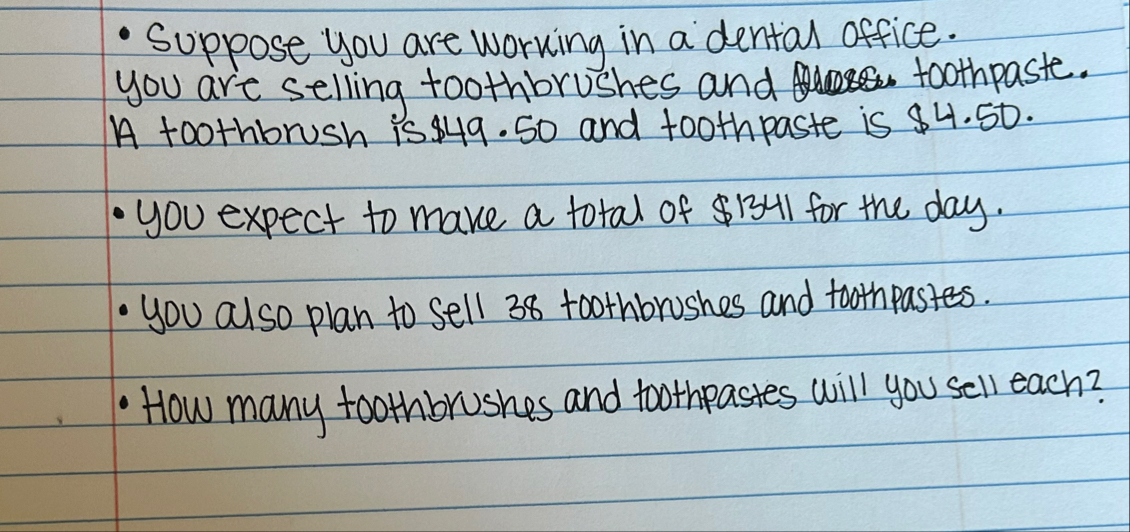 • Suppose you are working in a dental office.
you are selling toothbrushes and toothpaste.
A toothbrush is $49.50 and toothpaste is $4.50.
• you expect to make a total of $1341 for the day.
• you also plan to sell 38 toothbrushes and toothpastes.
• How many toothbrushes and toothpastes will you sell each?